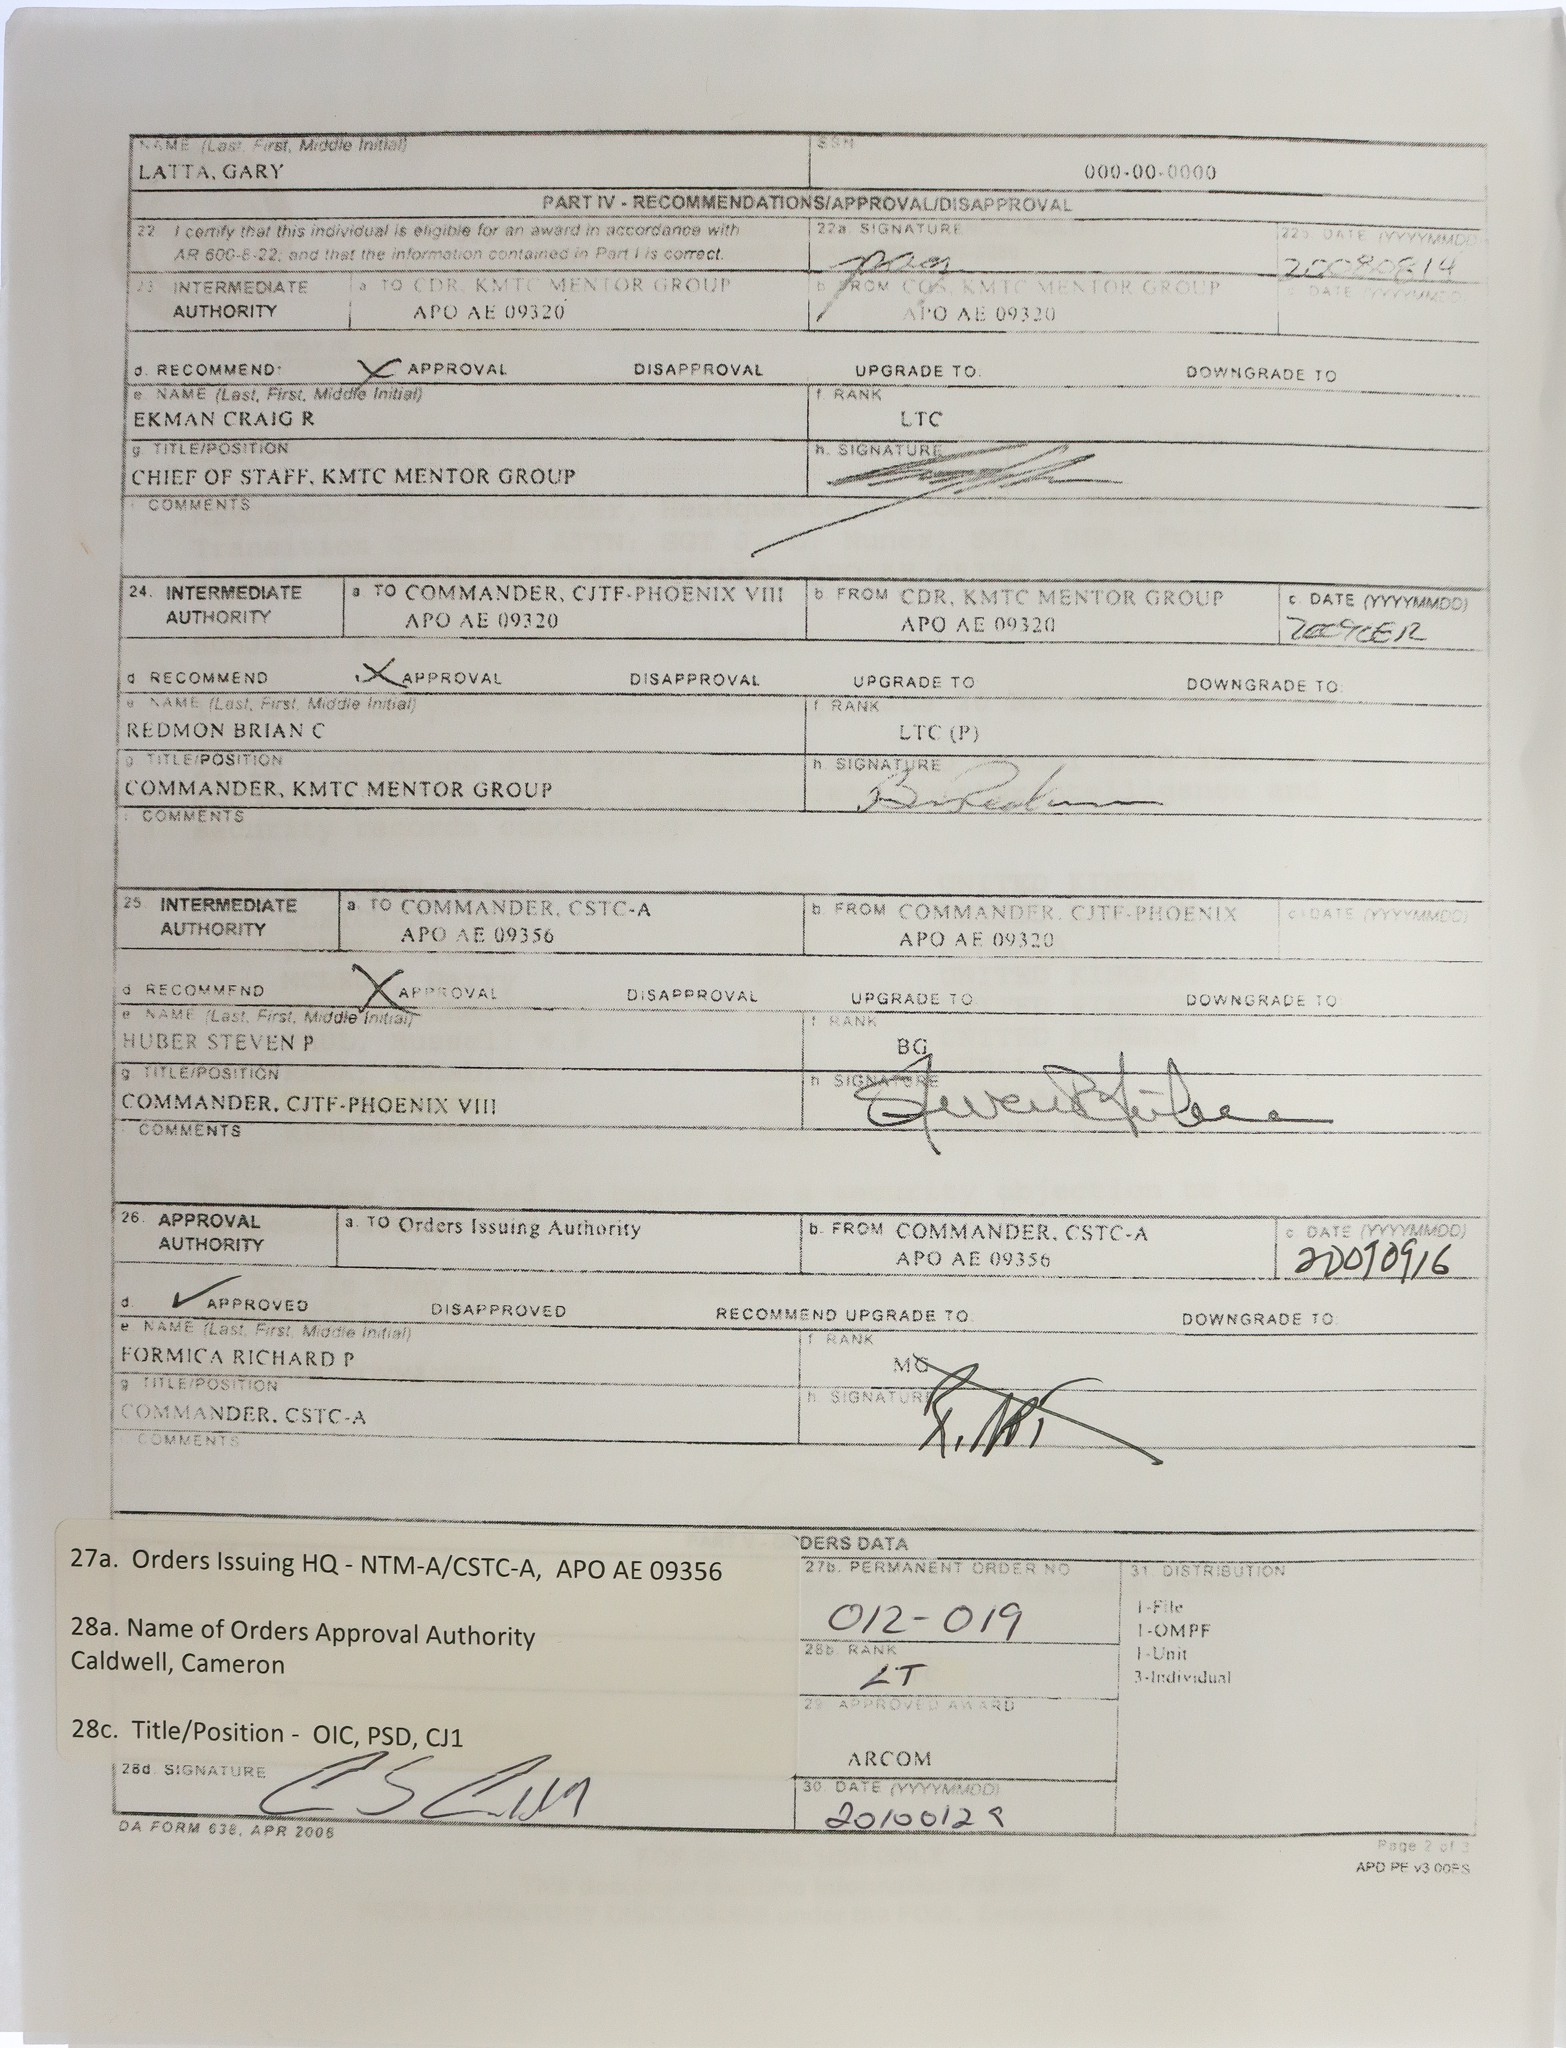 NAME (Last, First, Middle Initial) SSN
LATTA, GARY 000-00-0000
PART IV - RECOMMENDATIONS/APPROVAL/DISAPPROVAL
22 I certify that this individual is eligible for an award in accordance with 22a. SIGNATURE 22b. DATE (YYYYMMDD)
AR 600-8-22; and that the information contained in Part I is correct. 20080814
23 INTERMEDIATE a TO CDR, KMTC MENTOR GROUP b FROM COS, KMTC MENTOR GROUP c DATE (YYYYMMDD)
AUTHORITY APO AE 09320 APO AE 09320
d. RECOMMEND: X APPROVAL DISAPPROVAL UPGRADE TO: DOWNGRADE TO
e NAME (Last, First, Middle Initial) f RANK
EKMAN CRAIG R LTC
g TITLE/POSITION h. SIGNATURE
CHIEF OF STAFF, KMTC MENTOR GROUP
COMMENTS
24. INTERMEDIATE a TO COMMANDER, CJTF-PHOENIX VIII b FROM CDR, KMTC MENTOR GROUP c. DATE (YYYYMMDD)
AUTHORITY APO AE 09320 APO AE 09320
d RECOMMEND X APPROVAL DISAPPROVAL UPGRADE TO DOWNGRADE TO:
e NAME (Last, First, Middle Initial) f RANK
REDMON BRIAN C LTC (P)
g TITLE/POSITION h SIGNATURE
COMMANDER, KMTC MENTOR GROUP
COMMENTS
25. INTERMEDIATE a TO COMMANDER, CSTC-A b. FROM COMMANDER, CJTF-PHOENIX c DATE (YYYYMMDD)
AUTHORITY APO AE 09356 APO AE 09320
d RECOMMEND X APPROVAL DISAPPROVAL UPGRADE TO DOWNGRADE TO:
e NAME (Last, First, Middle Initial) f RANK
HUBER STEVEN P BG
g TITLE/POSITION h SIGNATURE
COMMANDER, CJTF-PHOENIX VIII
COMMENTS
26. APPROVAL a. TO Orders Issuing Authority b. FROM COMMANDER, CSTC-A c DATE (YYYYMMDD)
AUTHORITY APO AE 09356 20090916
d. APPROVED DISAPPROVED RECOMMEND UPGRADE TO DOWNGRADE TO:
e NAME (Last, First, Middle Initial) f RANK
FORMICA RICHARD P MG
g TITLE/POSITION h. SIGNATURE
COMMANDER, CSTC-A
COMMENTS
PART V - ORDERS DATA
27a. Orders Issuing HQ - NTM-A/CSTC-A, APO AE 09356 27b. PERMANENT ORDER NO 31. DISTRIBUTION
012-019 1-File
1-OMPF
28a. Name of Orders Approval Authority 28b. RANK 1-Unit
Caldwell, Cameron LT 3-Individual
29. APPROVED AWARD
28c. Title/Position - OIC, PSD, CJ1 ARCOM
28d. SIGNATURE 30. DATE (YYYYMMDD)
20100129
DA FORM 638, APR 2006 Page 2 of 3
APD PE v3.00ES